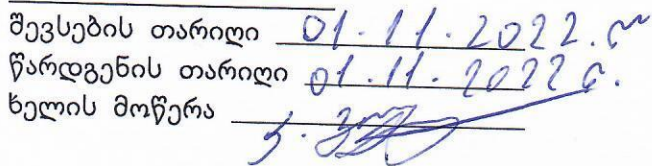 შევსების თარიღი 01.11.2022.წ
წარდგენის თარიღი 01.11.2022წ.
ხელის მოწერა